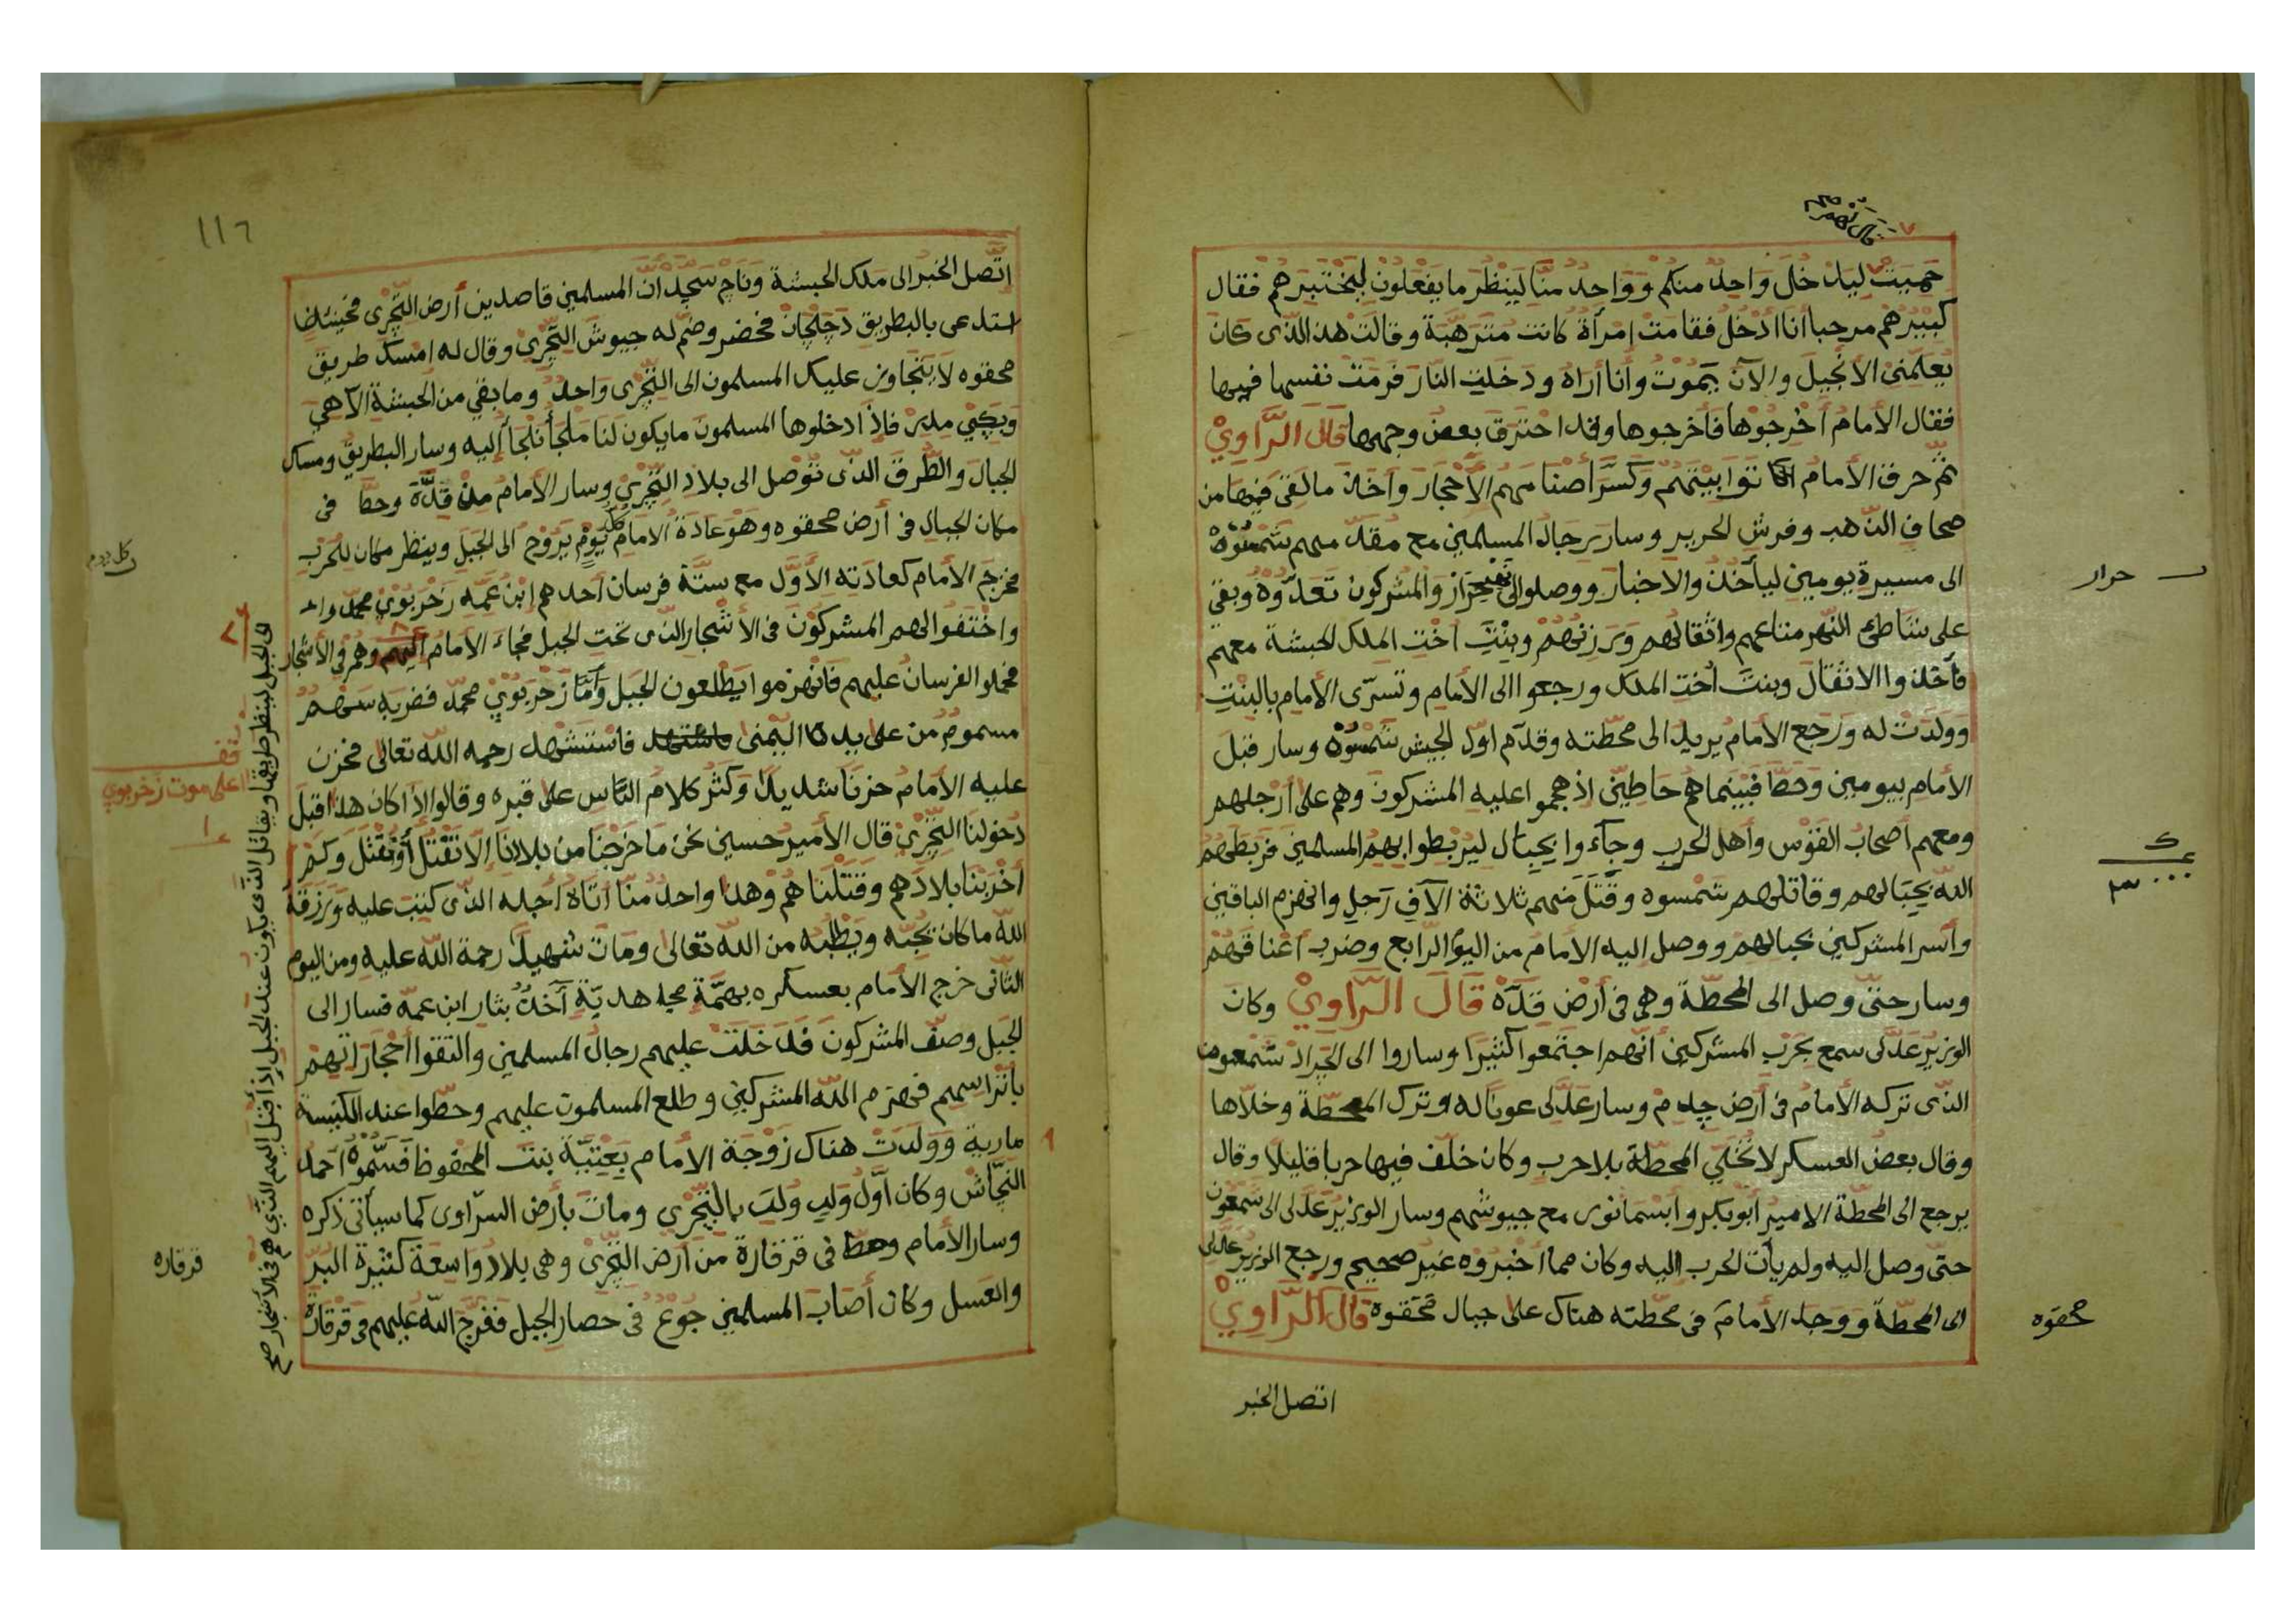 حميت ليدخل واحد منكم وواحد منا لينظر ما يفعلون ليختبرهم فقال
كبيرهم مرحبا انا أدخل فقامت إمرأة كانت مترهبة وقالت هذا الذى كان
يعلمنى الانجيل والآن يموت وأنا أراه ودخلت النار فرمت نفسها فيها
فقال الأمام أخرجوها فأخرجوها وقد احترق بعض وجهها قال الراوي
ثم حرق الأمام بيتهم وكسر أصنامهم الأحجار وأخذ ما لقى فيها من
صحاف الذهب وفرش الحرير وسار رجال المسلمين مع مقدمهم شمسوه
الى مسيرة يومين ليأخذ والاخبار ووصلوا الى والمشركون تعدوه وبقي
على شاطئ النهر متاعهم واثقالهم وبنت اخت الملك الحبشة معهم
فأخذوا الاثقال وبنت أخت الملك ورجعوا الى الأمام وتسرى الأمام بالبنت
وولدت له ورجع الأمام يريد الى محطته وقدم اول الجيش شمسوه وسار قبل
الأمام بيومين وحط فبينما هم حاطين اذ هجموا عليه المشركون وهم على أرجلهم
ومعهم أصحاب القوس وأهل الحرب وجآءوا بحبال ليربطوا بهم المسلمين فربطهم
الله بحبالهم وقاتلهم شمسوه وقتل منهم ثلاثة الآف رجل وانهزم الباقين
وأسر المشركين بحبالهم ووصل اليه الامام من اليوم الرابع وضرب أعناقهم
وسار حتى وصل الى المحطة وهي في أرض قدّه قال الراوي وكان
الوزير عدلى سمع بحرب المشركين أنهم اجتمعوا كثيرا وساروا الى الجراد شمعون
الذى تركه الأمام فى أرض وسار عدلى عونا له وترك المحطة وخلاها
وقال بعض العسكر لا تخلي المحطة بلا حرب وكان خلف فيها حربا قليلا وقال
يرجع الى المحطة الامير أبو بكر وابسمانور مع جيوشهم وسار الوزير عدلى الى شمعون
حتى وصل اليه ولم يأت الحرب اليه وكان مما أخبروه غير صحيح ورجع الوزير عدلى
الى المحطة ووجد الأمام في محطته هناك على جبال محقوه قال الراوي
اتصل الخبر
حرار
محقوه
١١٦
اتصل الخبر الى ملك الحبشة وناج سجد ان المسلمين قاصدين أرض التجري فحينئذ
استدعى بالبطريق دجلجان فحضر وضم له جيوش التجري وقال له امسك طريق
محقوه لا يتجاوز عليك المسلمون الى التجرى واحد وما بقي من الحبشة الا هي
وبكي مدر فاذا دخلوها المسلمون ما يكون لنا ملجأ نلجأ اليه وسار البطريق ومسك
الجبال والطرق الذى توصل الى بلاد التجري وسار الأمام من قدة وحط فى
مكان الجبال فى أرض محقوه وهو عادة الامام كل يوم يروح الى الجبل وينظر مكان للحرب
فخرج الأمام كعادته الأول مع ستة فرسان أحدهم إبن عمه زحربوي محمد
واختفوا لهم المشركون فى الأشجار الذى تحت الجبل فجاء الامام اليهم وهم فى الأشجار
فحملوا الفرسان عليهم فانهزموا يطلعون الجبل وأما زحربوي محمد فضربه سهم
مسموم من على يده اليمنى فاستشهد رحمه الله تعالى فحزن
عليه الأمام حزنا شديدا وكثر كلام الناس على قبره وقالوا اذا كان هذا قبل
دخولنا التجري قال الأمير حسين نحن ما خرجنا من بلادنا إلا نقتل أو نقتل وكم
أخربنا بلادهم وقتلناهم وهذا واحد منا اتاه أجله الذى كتبت عليه ورزقه
الله ما كان يحبه ويطلبه من الله تعالى ومات شهيدا رحمة الله عليه ومن اليوم
الثانى خرج الأمام بعسكره بهمة مجاهدية آخذ بثار ابن عمه فسار الى
الجبل وصف المشركون فدخلت عليهم رجال المسلمين والتقوا أحجارتهم
بأتراسهم فهزم الله المشركين وطلع المسلمون عليهم وحطوا عند الكنيسة
مارية وولدت هناك زوجة الامام بنت المحفوظ فسموه أحمد
النجاش وكان أول ولد ولد بالتجري ومات بأرض السراوى كما سيأتى ذكره
وسار الأمام وحط فى قرقارة من أرض التجرى وهى بلاد واسعة كثيرة البر
والعسل وكان أصاب المسلمين جوع فى حصار الجبل ففرج الله عليهم فى قرقارة
كل يوم
على موت زحربوي
قرقاره
الى الجبل لينظر طريقا ويقاتل الذى يكون عند الجبل اذ أقبل اليهم الذى هم فى الأشجار صح